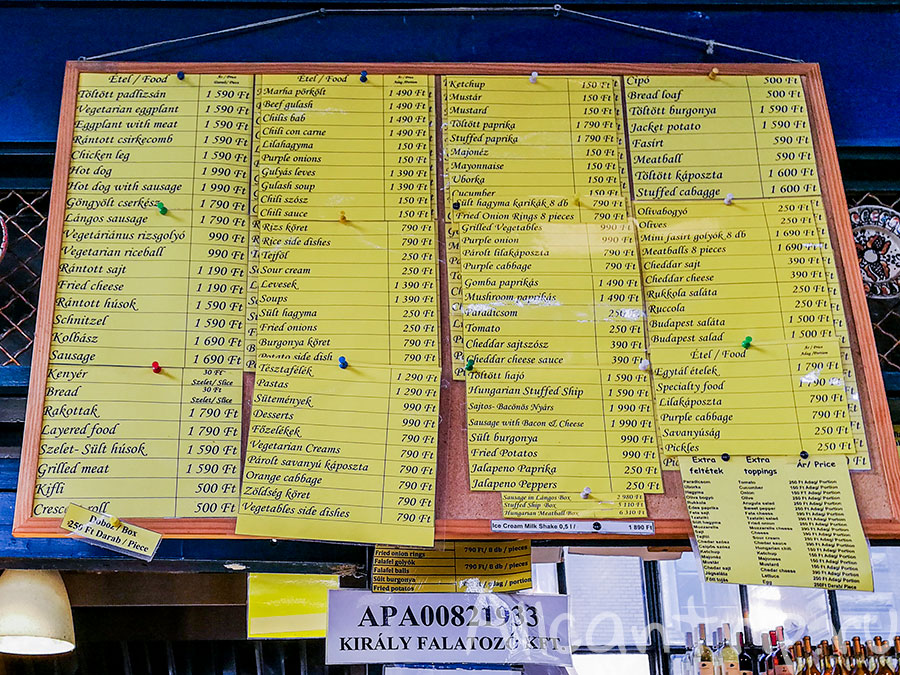 Étel / Food Ár / Price Darab/ Piece
Töltött padlizsán 1 590 Ft
Vegetarian eggplant 1 590 Ft
Eggplant with meat 1 590 Ft
Rántott csirkecomb 1 590 Ft
Chicken leg 1 590 Ft
Hot dog 1 990 Ft
Hot dog with sausage 1 990 Ft
Göngyölt cserkész 1 790 Ft
Lángos sausage 1 790 Ft
Vegetáriánus rizsgolyó 990 Ft
Vegetarian riceball 990 Ft
Rántott sajt 1 190 Ft
Fried cheese 1 190 Ft
Rántott húsok 1 590 Ft
Schnitzel 1 590 Ft
Kolbász 1 690 Ft
Sausage 1 690 Ft
Kenyér 30 Ft Szelet/ Slice
Bread 30 Ft Szelet/ Slice
Rakottak 1 790 Ft
Layered food 1 790 Ft
Szelet- Sült húsok 1 590 Ft
Grilled meat 1 590 Ft
Kifli 500 Ft
Crescent roll 500 Ft
Doboz/ Box
250 Ft Darab/ Piece
Étel / Food Ár / Price Adag /Portion
Marha pörkölt 1 490 Ft
Beef gulash 1 490 Ft
Chilis bab 1 490 Ft
Chili con carne 1 490 Ft
Lilahagyma 150 Ft
Purple onions 150 Ft
Gulyás leves 1 390 Ft
Gulash soup 1 390 Ft
Chili szósz 150 Ft
Chili sauce 150 Ft
Rizs köret 790 Ft
Rice side dishes 790 Ft
Tejföl 250 Ft
Sour cream 250 Ft
Levesek 1 390 Ft
Soups 1 390 Ft
Sült hagyma 250 Ft
Fried onions 250 Ft
Burgonya köret 790 Ft
Potato side dish 790 Ft
Tésztafélék 1 290 Ft
Pastas 1 290 Ft
Sütemények 990 Ft
Desserts 990 Ft
Főzelékek 790 Ft
Vegetarian Creams 790 Ft
Párolt savanyú káposzta 790 Ft
Orange cabbage 790 Ft
Zöldség köret 790 Ft
Vegetables side dishes 790 Ft
Ketchup 150 Ft
Mustár 150 Ft
Mustard 150 Ft
Töltött paprika 1 790 Ft
Stuffed paprika 1 790 Ft
Majonéz 150 Ft
Mayonnaise 150 Ft
Uborka 150 Ft
Cucumber 150 Ft
Sült hagyma karikák 8 db 790 Ft
Fried Onion Rings 8 pieces 790 Ft
Grilled Vegetables 990 Ft
Purple onion 990 Ft
Párolt lilakáposzta 790 Ft
Purple cabbage 790 Ft
Gomba paprikás 1 490 Ft
Mushroom paprikás 1 490 Ft
Paradicsom 250 Ft
Tomato 250 Ft
Cheddar sajtszósz 390 Ft
Cheddar cheese sauce 390 Ft
Töltött hajó 1 590 Ft
Hungarian Stuffed Ship 1 590 Ft
Sajtos- Bacónös Nyárs 1 990 Ft
Sausage with Bacon & Cheese 1 990 Ft
Sült burgonya 990 Ft
Fried Potatos 990 Ft
Jalapeno Paprika 250 Ft
Jalapeno Peppers 250 Ft
Sausage in Lángos Box 2 980 Ft
Stuffed Ship Box 3 110 Ft
Hungarian Meatball Box 6 310 Ft
Ice Cream Milk Shake 0,5 l / 1 890 Ft
Cipó 500 Ft
Bread loaf 500 Ft
Töltött burgonya 1 590 Ft
Jacket potato 1 590 Ft
Fasírt 590 Ft
Meatball 590 Ft
Töltött káposzta 1 600 Ft
Stuffed cabagge 1 600 Ft
Olivabogyó 250 Ft
Olives 250 Ft
Mini fasírt golyók 8 db 1 690 Ft
Meatballs 8 pieces 1 690 Ft
Cheddar sajt 390 Ft
Cheddar cheese 390 Ft
Rukkola saláta 250 Ft
Ruccola 250 Ft
Budapest saláta 1 500 Ft
Budapest salad 1 500 Ft
Étel / Food Ár / Price Adag /Portion
Egytál ételek 1 790 Ft
Specialty food 1 790 Ft
Lilakáposzta 790 Ft
Purple cabbage 790 Ft
Savanyúság 250 Ft
Pickles 250 Ft
Extra feltétek Extra toppings Ár/ Price
Paradicsom Tomato 250 Ft Adag/ Portion
Uborka Cucumber
Fried onion rings 790 Ft/ 8 db / pieces
Falafel golyók
Falafel balls 790 Ft/ 8 db / pieces
Sült burgonya
Fried potatos 990 Ft/ adag / portion
APA00821933
KIRÁLY FALATOZÓ KFT